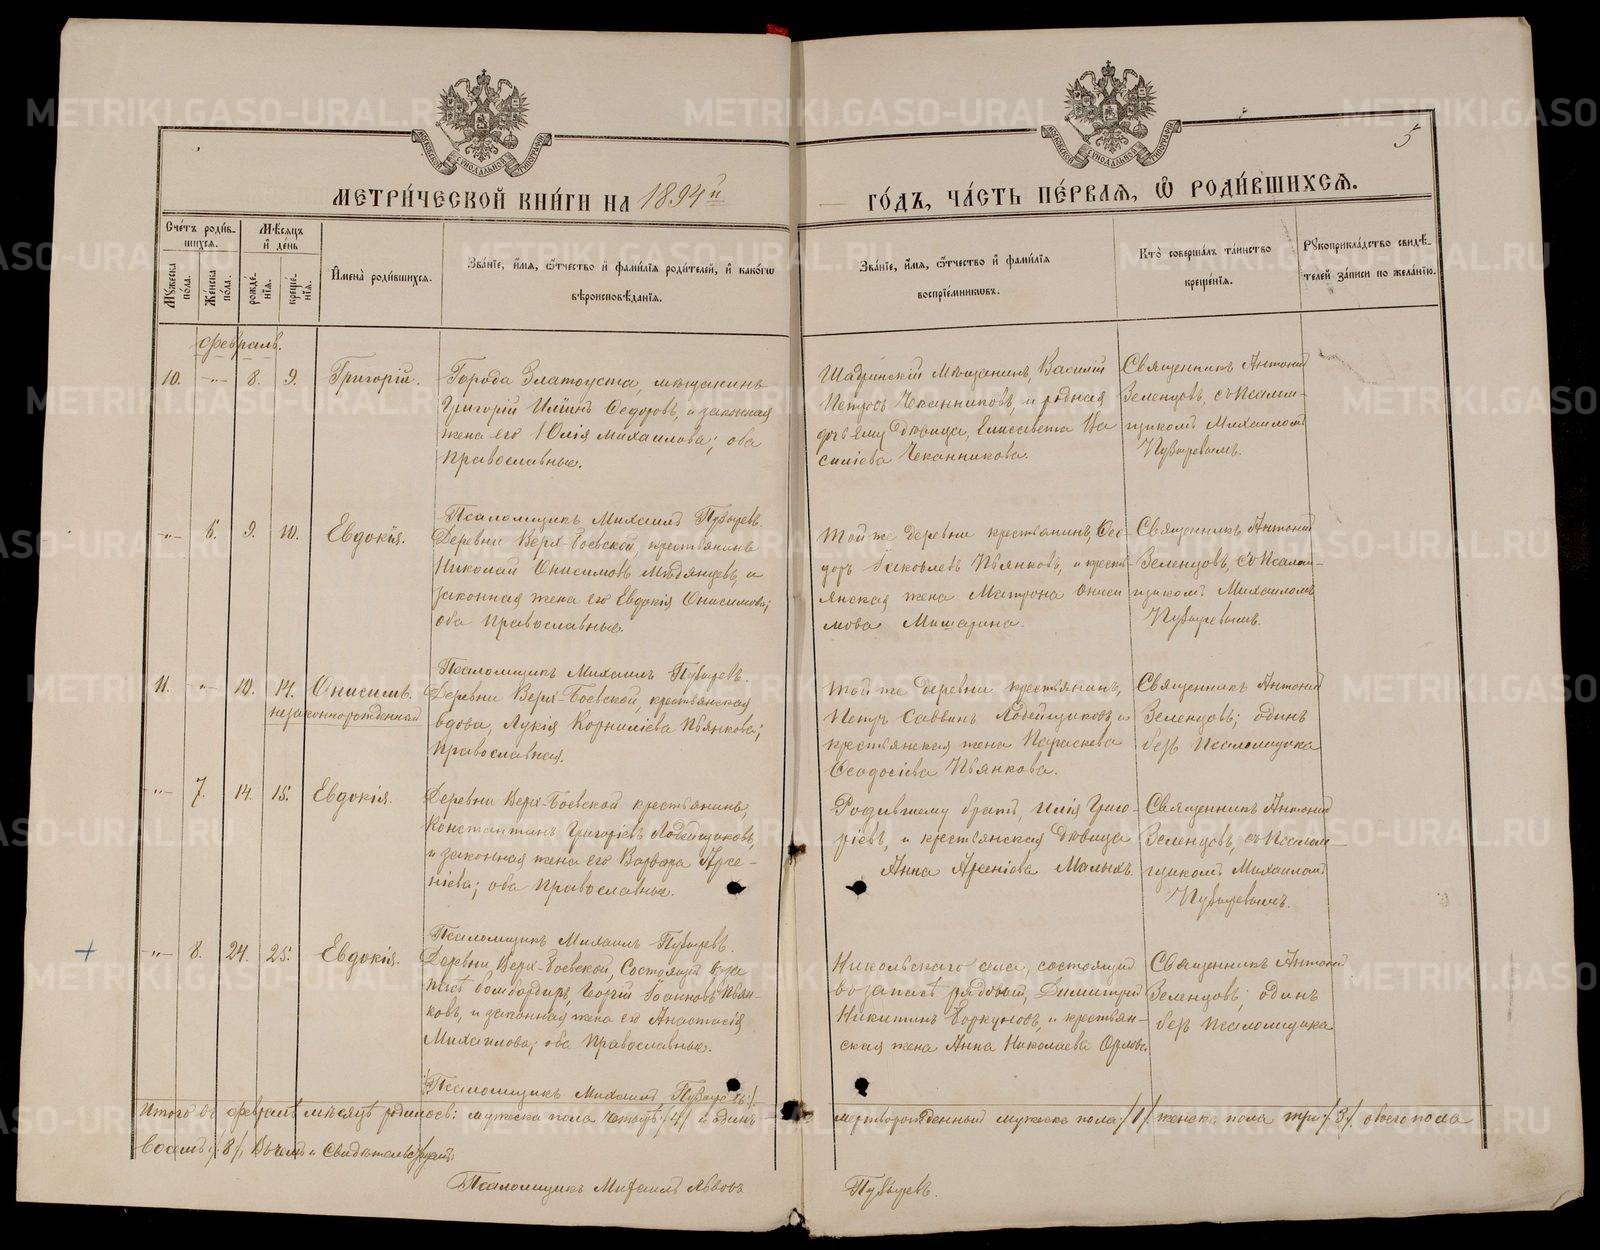 МЕТРИ́ЧЕСКОЙ КНИ́ГИ НА 1894й ГО́ДЪ, ЧА́СТЬ ПЕ́РВАЯ, Ѡ҆ РОДИ́ВШИХСЯ.
5
Сче́тъ роди́в-
шихся.
Му́жеска
по́ла.
Же́нска
по́ла.
Мѣ́сяцъ
и҆ де́нь
рожде́-
нїя.
креще́-
нїя.
И҆мена̀ роди́вшихся.
Зва́нїе, и҆́мя, ѻ҆́тчество и҆ фамѝлїя роди́телей, и҆ како́гѡ
вѣроисповѣ́данїя.
Зва́нїе, и҆́мя, ѻ҆́тчество и҆ фамѝлїя
воспрїе́мникѡвъ.
Кто̀ соверша́лъ та́инство
креще́нїя.
Рꙋкоприкла́дство свидѣ́-
телей за́писи по жела́нїю.
Февраль.
10. -"- 8. 9. Григорій.
Города Златоуста, мѣщанинъ
Григорій Ильинъ Ѳедоровъ, и законная
жена его Юлія Михаилова; оба
православные.
Шадринскій мѣщанинъ, Василій
Петровъ Чеканниковъ, и родная
дочь ему дѣвица, Елисавета Ва
силіева Чеканникова.
Священникъ Антоній
Зеленцовъ, съ псалом-
щикомъ Михаиломъ
Пузыревымъ.
Псаломщикъ Михаилъ Пузыревъ.
-"- 6. 9. 10. Евдокія.
Деревни Верх-Боевской, крестьянинъ
Николай Онисимовъ Медвянцевъ, и
законная жена его Евдокія Онисимова;
оба православные.
Той же деревни крестьянинъ, Ѳео-
доръ Іаковлевъ Пьянковъ, и кресть-
янская жена Матрона Ониси
мова Мишарина.
Священникъ, Антоній
Зеленцовъ, съ псалом-
щикомъ Михаиломъ
Пузыревымъ.
Псаломщикъ Михаилъ Пузыревъ.
11. -"- 13. 14. Онисимъ.
незаконнорожденный
Деревни Верх-Боевской, крестьянская
вдова, Лукія Корниліева Пьянкова;
православная.
Той же деревни крестьянинъ,
Петръ Саввинъ Лодейщиковъ, и
крестьянская жена Параскева
Ѳеодосіева Пьянкова.
Священникъ Антоній
Зеленцовъ; одинъ
безъ псаломщика
-"- 7. 14. 15. Евдокія.
Деревни Верх-Боевской крестьянинъ,
Константинъ Григоріевъ Лодейщиковъ,
и законная жена его Варвара Арсе-
ніева; оба православные.
Родившему братъ, Илія Григо-
ріевъ, и крестьянская дѣвица
Анна Арсеніева Малыхъ.
Священникъ Антоній
Зеленцовъ, съ псалом-
щикомъ Михаиломъ
Пузыревымъ.
Псаломщикъ Михаилъ Пузыревъ.
+ -"- 8. 24. 25. Евдокія.
Деревни, Верх-Боевской, состоящій въ за
пасѣ бомбардиръ, Георгій Іоанновъ Пьян-
ковъ, и законная жена его Анастасія
Михаилова; оба православные.
Никольскаго села, состоящій
во запасѣ рядовый, Димитрій
Никитинъ Боркуновъ, и крестьян-
ская жена Анна Николаева Орлова.
Священникъ Антоній
Зеленцовъ; одинъ
безъ псаломщика
Псаломщикъ Михаилъ Пузыревъ.
Итого въ февралѣ мѣсяцѣ родилось: мужеска пола четыре /4/ и одинъ мертворожденный мужеска пола /1/ женска пола три /3/ обоего пола
восемь /8/. Въ чемъ и свидѣтельствуемъ
Псаломщикъ Михаилъ Львовъ Пузыревъ.
METRIKI.GASO-URAL.RU